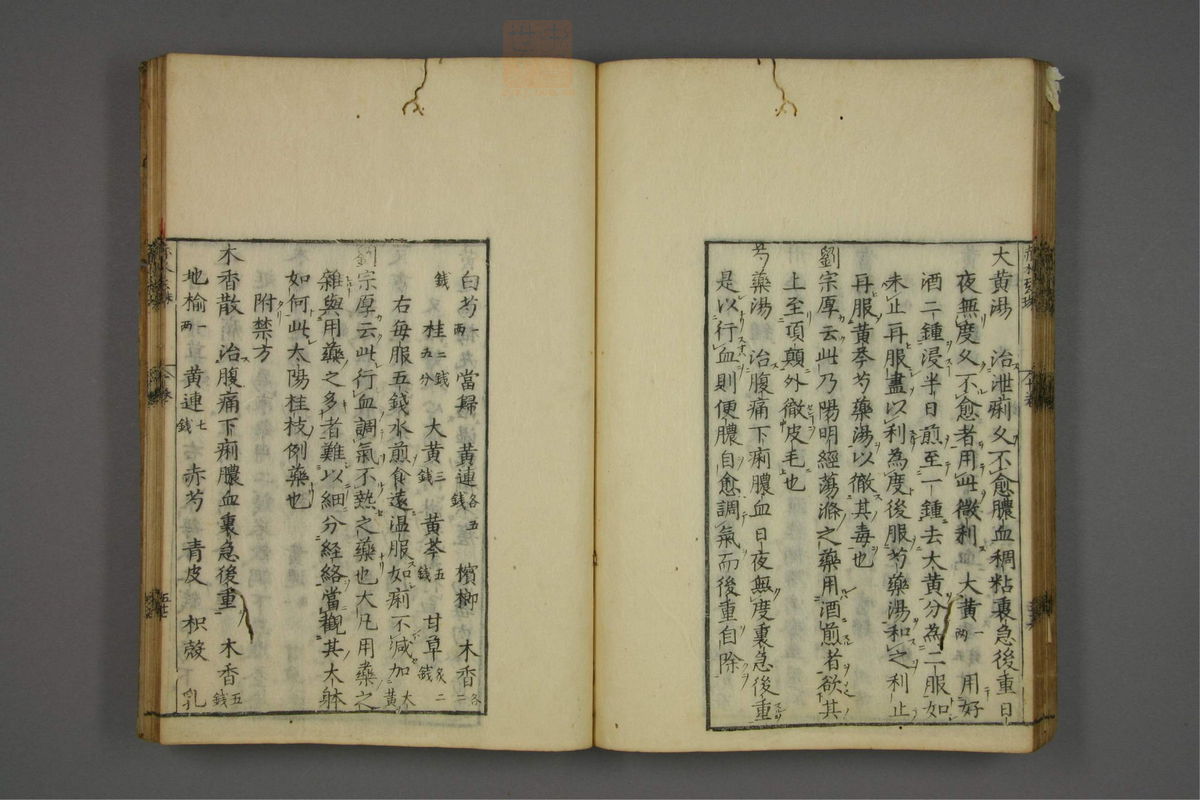 大黃湯　治泄痢久不愈膿血稠粘裏急後重日
夜無度久不愈者用此微利血大黃一兩用好
酒二鍾浸半日煎至一鍾去大黃分為二服如
未止再服盡以利為度後服芍藥湯和之利止
再服黃芩芍藥湯以徹其毒也
劉宗厚云此乃陽明經蕩滌之藥用酒煎者欲其
上至項顛外徹皮毛也
芍藥湯　治腹痛下痢膿血日夜無度裏急後重
是以行血則便膿自愈調氣而後重自除
白芍一兩當歸　黃連各五錢　檳榔　木香各二
錢　桂二錢五分　大黃三錢　黃芩五錢　甘草炙二錢
右每服五錢水煎食遠温服如痢不減加大黃
劉宗厚云此行血調氣不熱之藥也大凡用藥之
雜與用藥之多者難以細分経絡當觀其大躰
如何此太陽桂枝例藥也
附禁方
木香散　治腹痛下痢膿血裏急後重　木香五錢
地榆一兩黃連七錢赤芍　青皮　枳殼　乳